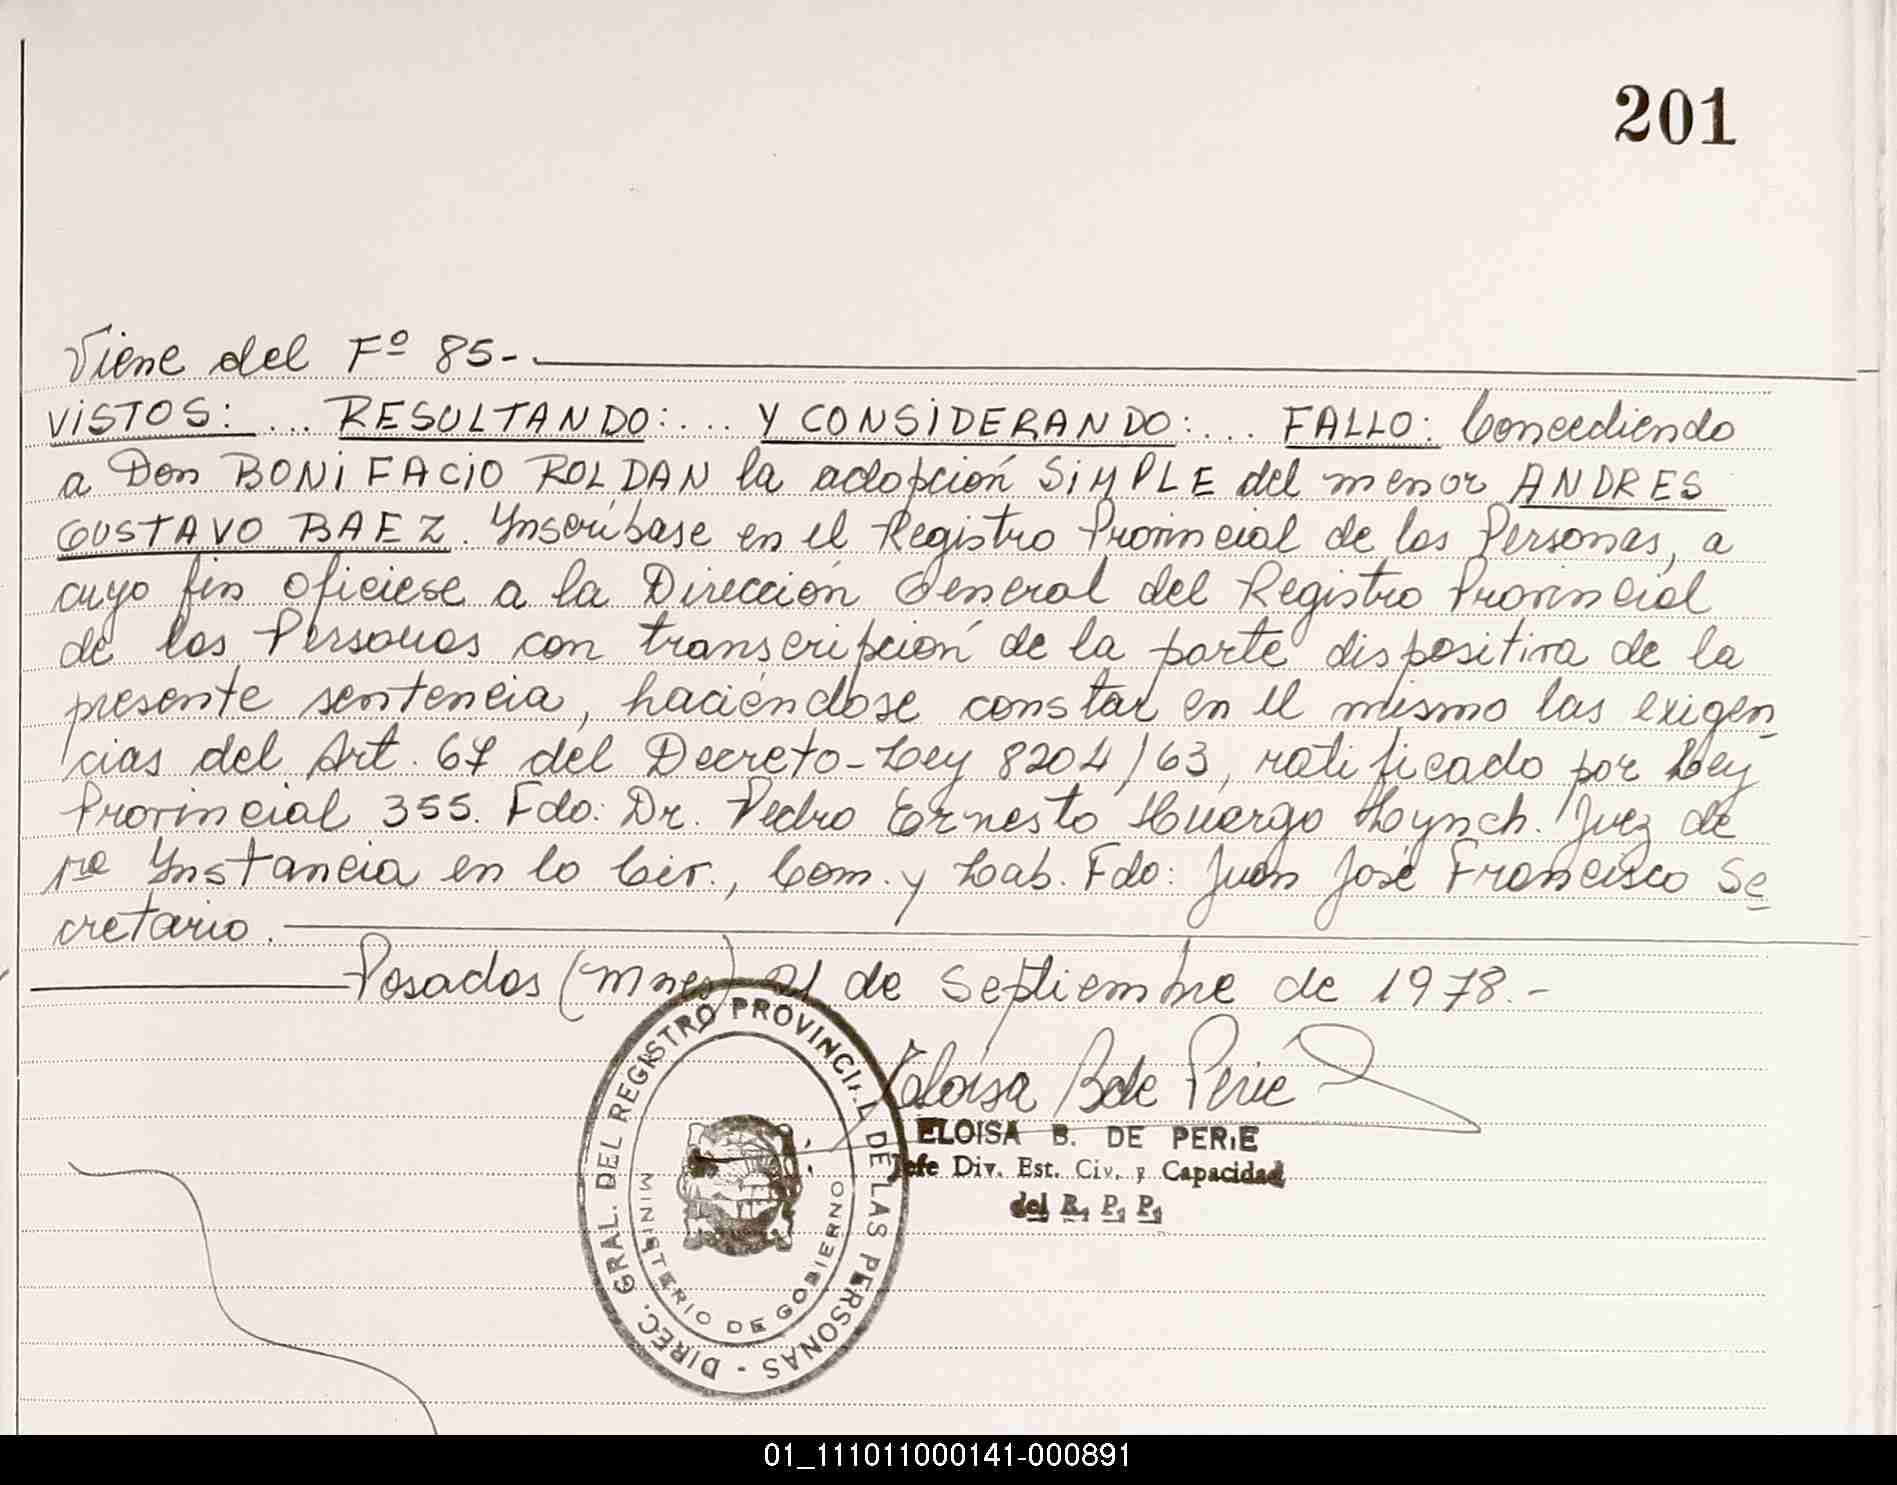 201
Viene del Fº 85-
VISTOS: ... RESULTANDO: ... Y CONSIDERANDO: ... FALLO: Concediendo
a Don BONIFACIO ROLDAN la adopción SIMPLE del menor ANDRES
GUSTAVO BAEZ. Inscríbase en el Registro Provincial de las Personas, a
cuyo fin ofíciese a la Dirección General del Registro Provincial
de las Personas con transcripción de la parte dispositiva de la
presente sentencia, haciéndose constar en el mismo las exigen
cias del Art. 67 del Decreto-Ley 8204/63, ratificado por Ley
Provincial 355. Fdo: Dr. Pedro Ernesto Huergo Lynch. Juez de
1ra Instancia en lo Civ., Com. y Lab. Fdo: Juan José Francisco Se
cretario.
Posadas (Mnes) 21 de Septiembre de 1978.-
Eloisa B de Perie
ELOISA B. DE PERIE
Jefe Div. Est. Civ. y Capacidad
del R. P. P.
DIREC. GRAL. DEL REGISTRO PROVINCIAL DE LAS PERSONAS -
MINISTERIO DE GOBIERNO
01_111011000141-000891